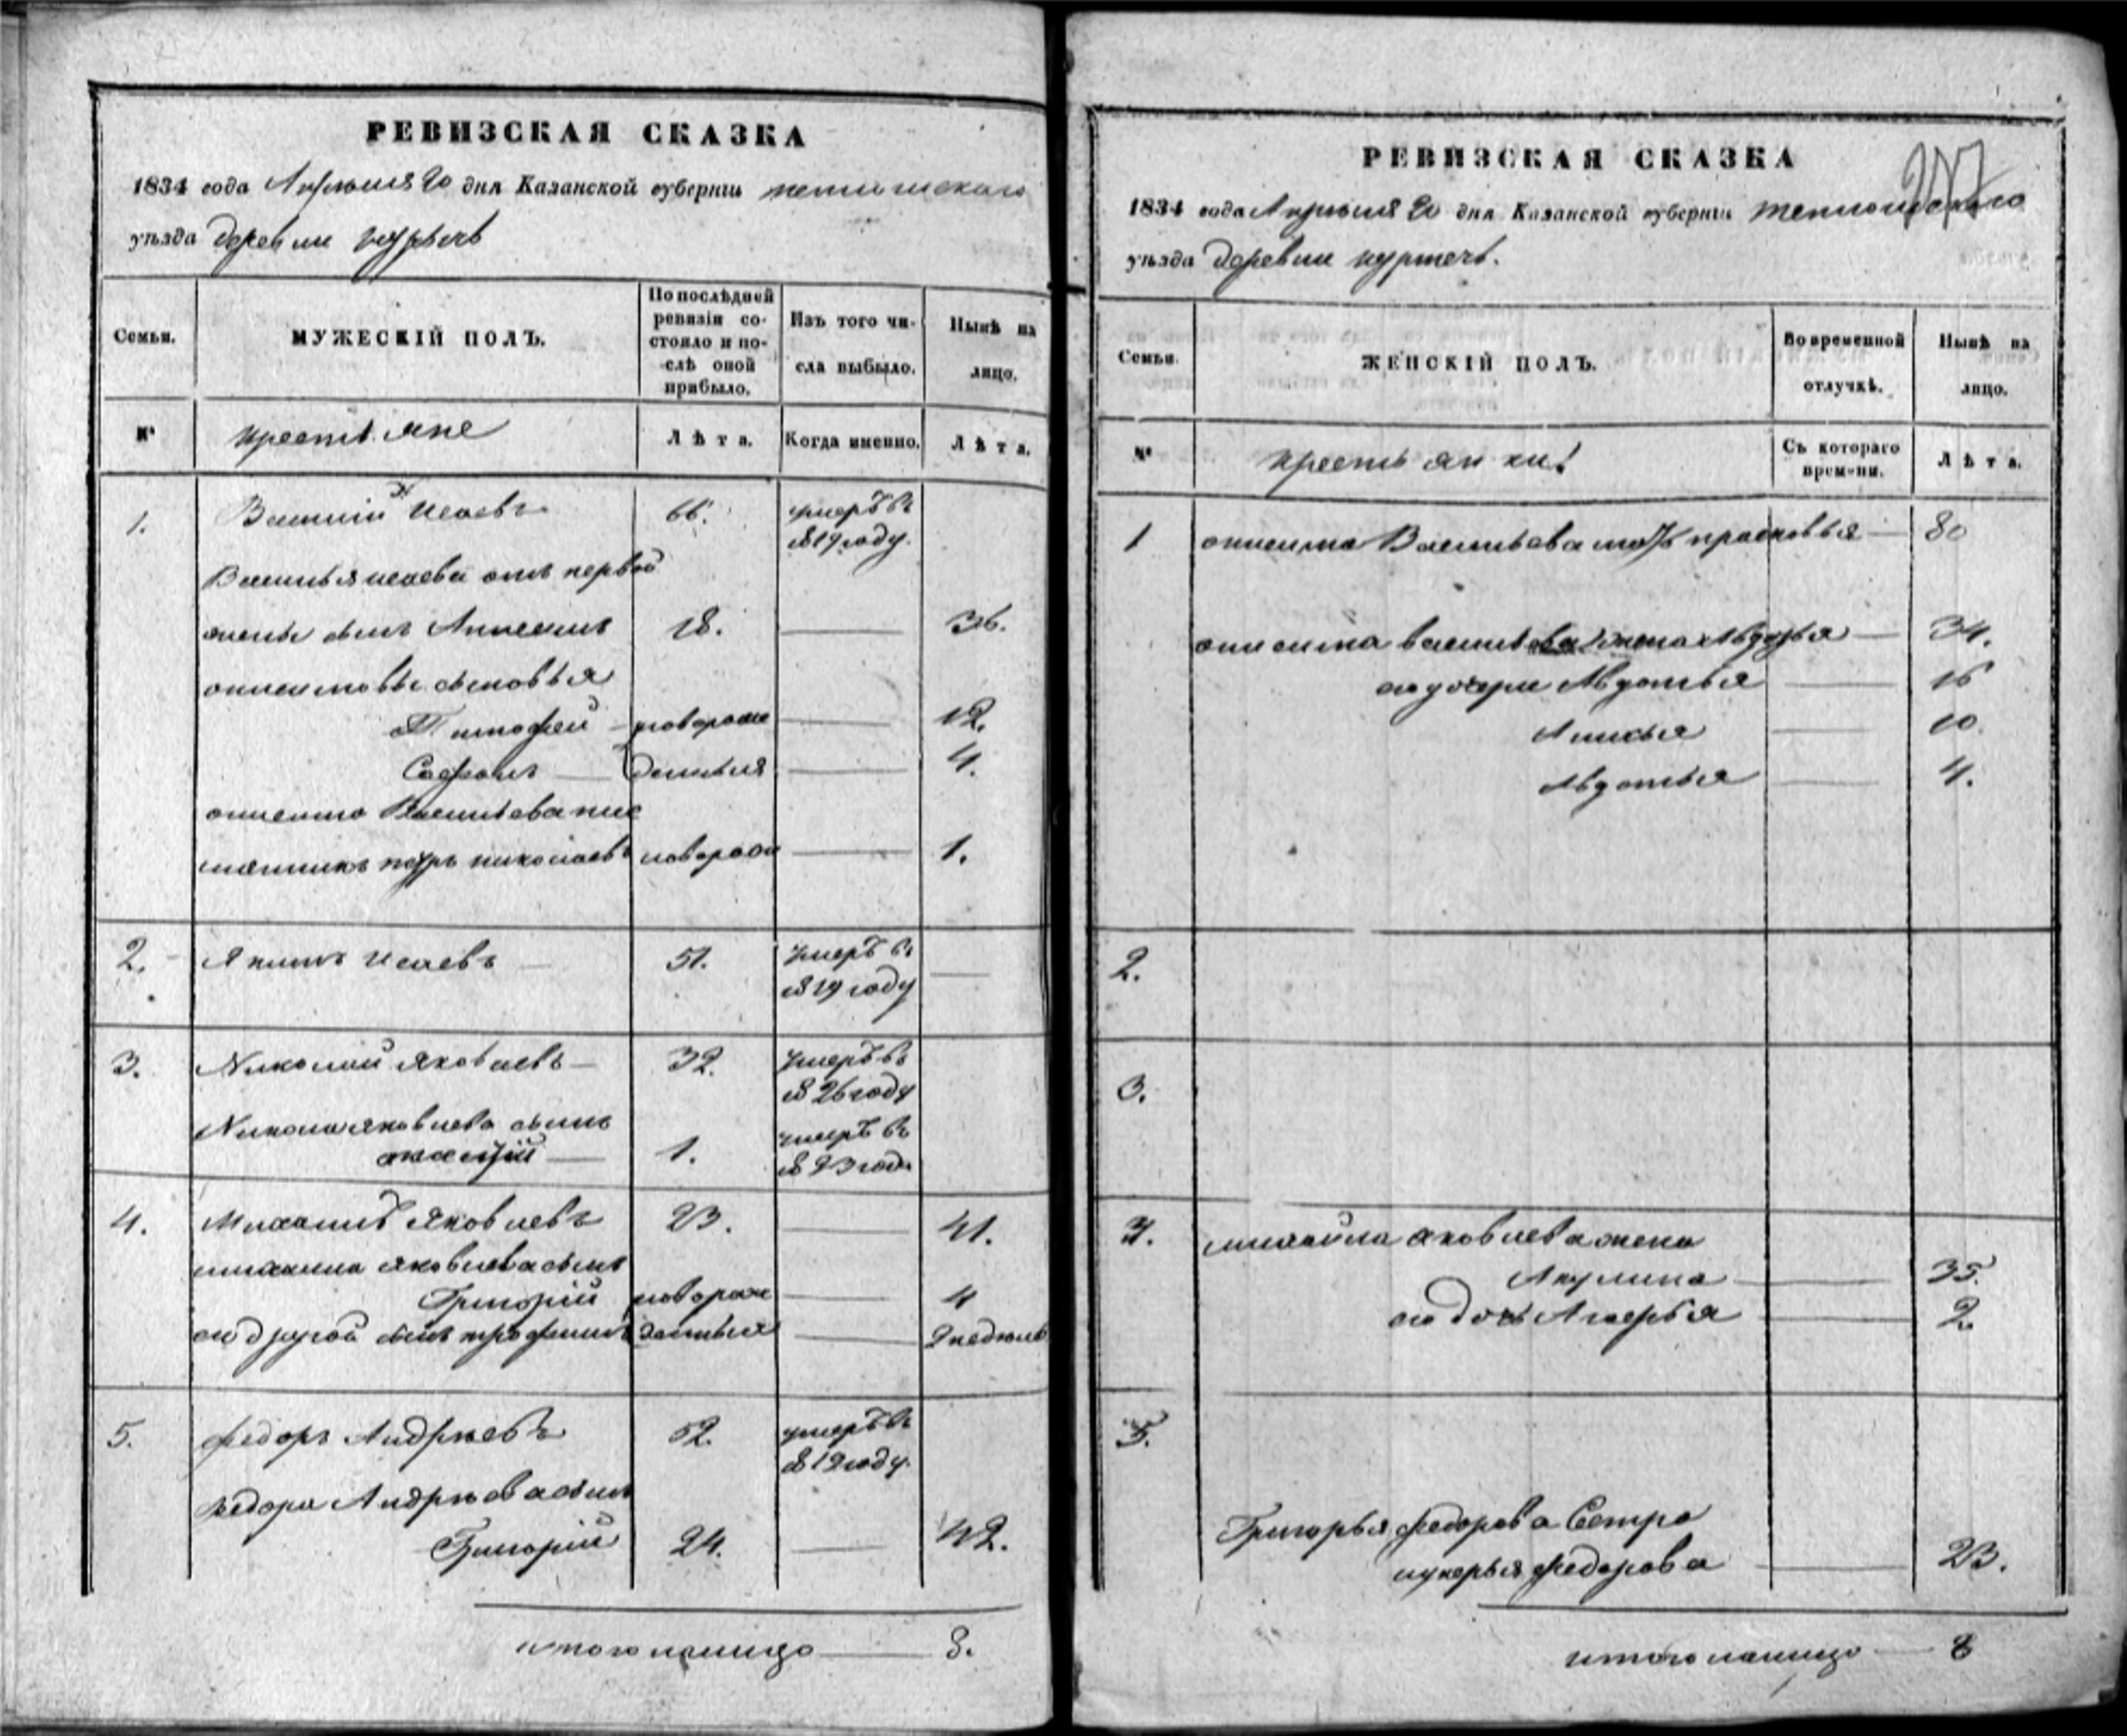 РЕВИЗСКАЯ СКАЗКА
1834 года Апреля 20 дня Казанской губернiи
уѣзда деревни
Семьи.
МУЖЕСКIЙ ПОЛЪ.
По послѣдней ревизiи состояло и послѣ оной прибыло.
Изъ того числа выбыло.
Нынѣ на лицо.
№
крестьяне
Лѣта.
Когда именно.
Лѣта.
1. Василiй Исаевъ 66. умеръ въ
1819 году.
Василья исаева отъ первой
жены сынъ Анисимъ 18. 36.
онисимовы сыновья
Тимофей новорож 12.
Софронъ денныя 4.
онисима Васильева пле
мянникъ петръ николаевъ новорож 1.
2. Якимъ Исаевъ 51. умеръ въ
1819 году
3. Николай Яковлевъ 32. умеръ въ
1826 году
Никола яковлева сынъ
1. умеръ въ
1823 году
4. Михаилъ Яковлевъ 23. 41.
михаила яковлева сынъ
Григорiй новорож 4
его другой сынъ трофимъ денныя 2 недель
5. федоръ Андреевъ 52. умеръ въ
1812 году.
федора Андреева сынъ
Григорiй 24. 42.
итого налицо 8.
РЕВИЗСКАЯ СКАЗКА
1834 года Апреля 20 дня Казанской губернiи
уѣзда деревни
Семьи.
ЖЕНСКIЙ ПОЛЪ.
Во временной отлучкѣ.
Нынѣ на лицо.
№
крестьянки
Съ котораго времени.
Лѣта.
1 онисима Васильева мать прасковья 80
онисима васильева жена Авдотья 34.
его дочери Авдотья 16
10.
Авдотья 4.
2.
3.
4. михайла яковлева жена
Акулина 35.
его дочь 2
5.
Григорья федорова Сестра
лукерья федорова 23.
итого налицо 8